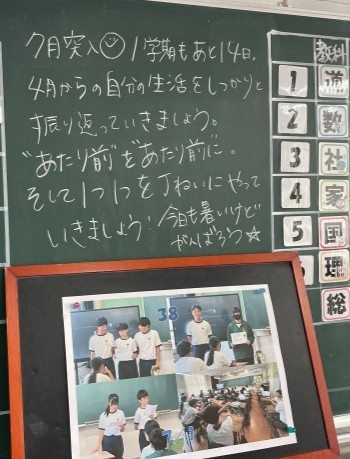 7月突入☺ 1学期もあと14日。
4月からの自分の生活をしっかりと
振り返っていきましょう。
"あたり前"を"あたり前に"。
そして1つ1つを丁ねいにやって
いきましょう! 今日も暑いけど
がんばろう☆
教科
1 道
2 数
3 社
4 家
5 国
理
総
38